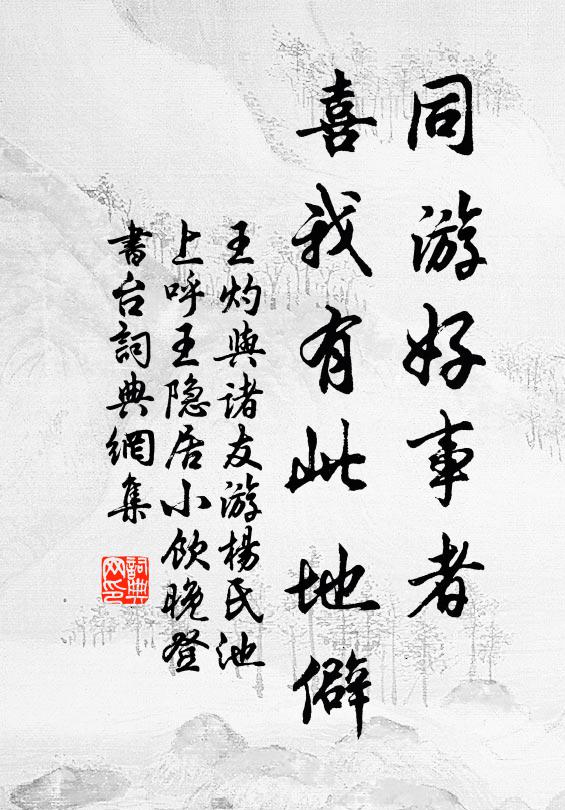 同游好事者
喜我有此地僻
王灼與诸友游楊氏池
上呼王隐居小饮晚登
書台詞典網集
詞典
网印